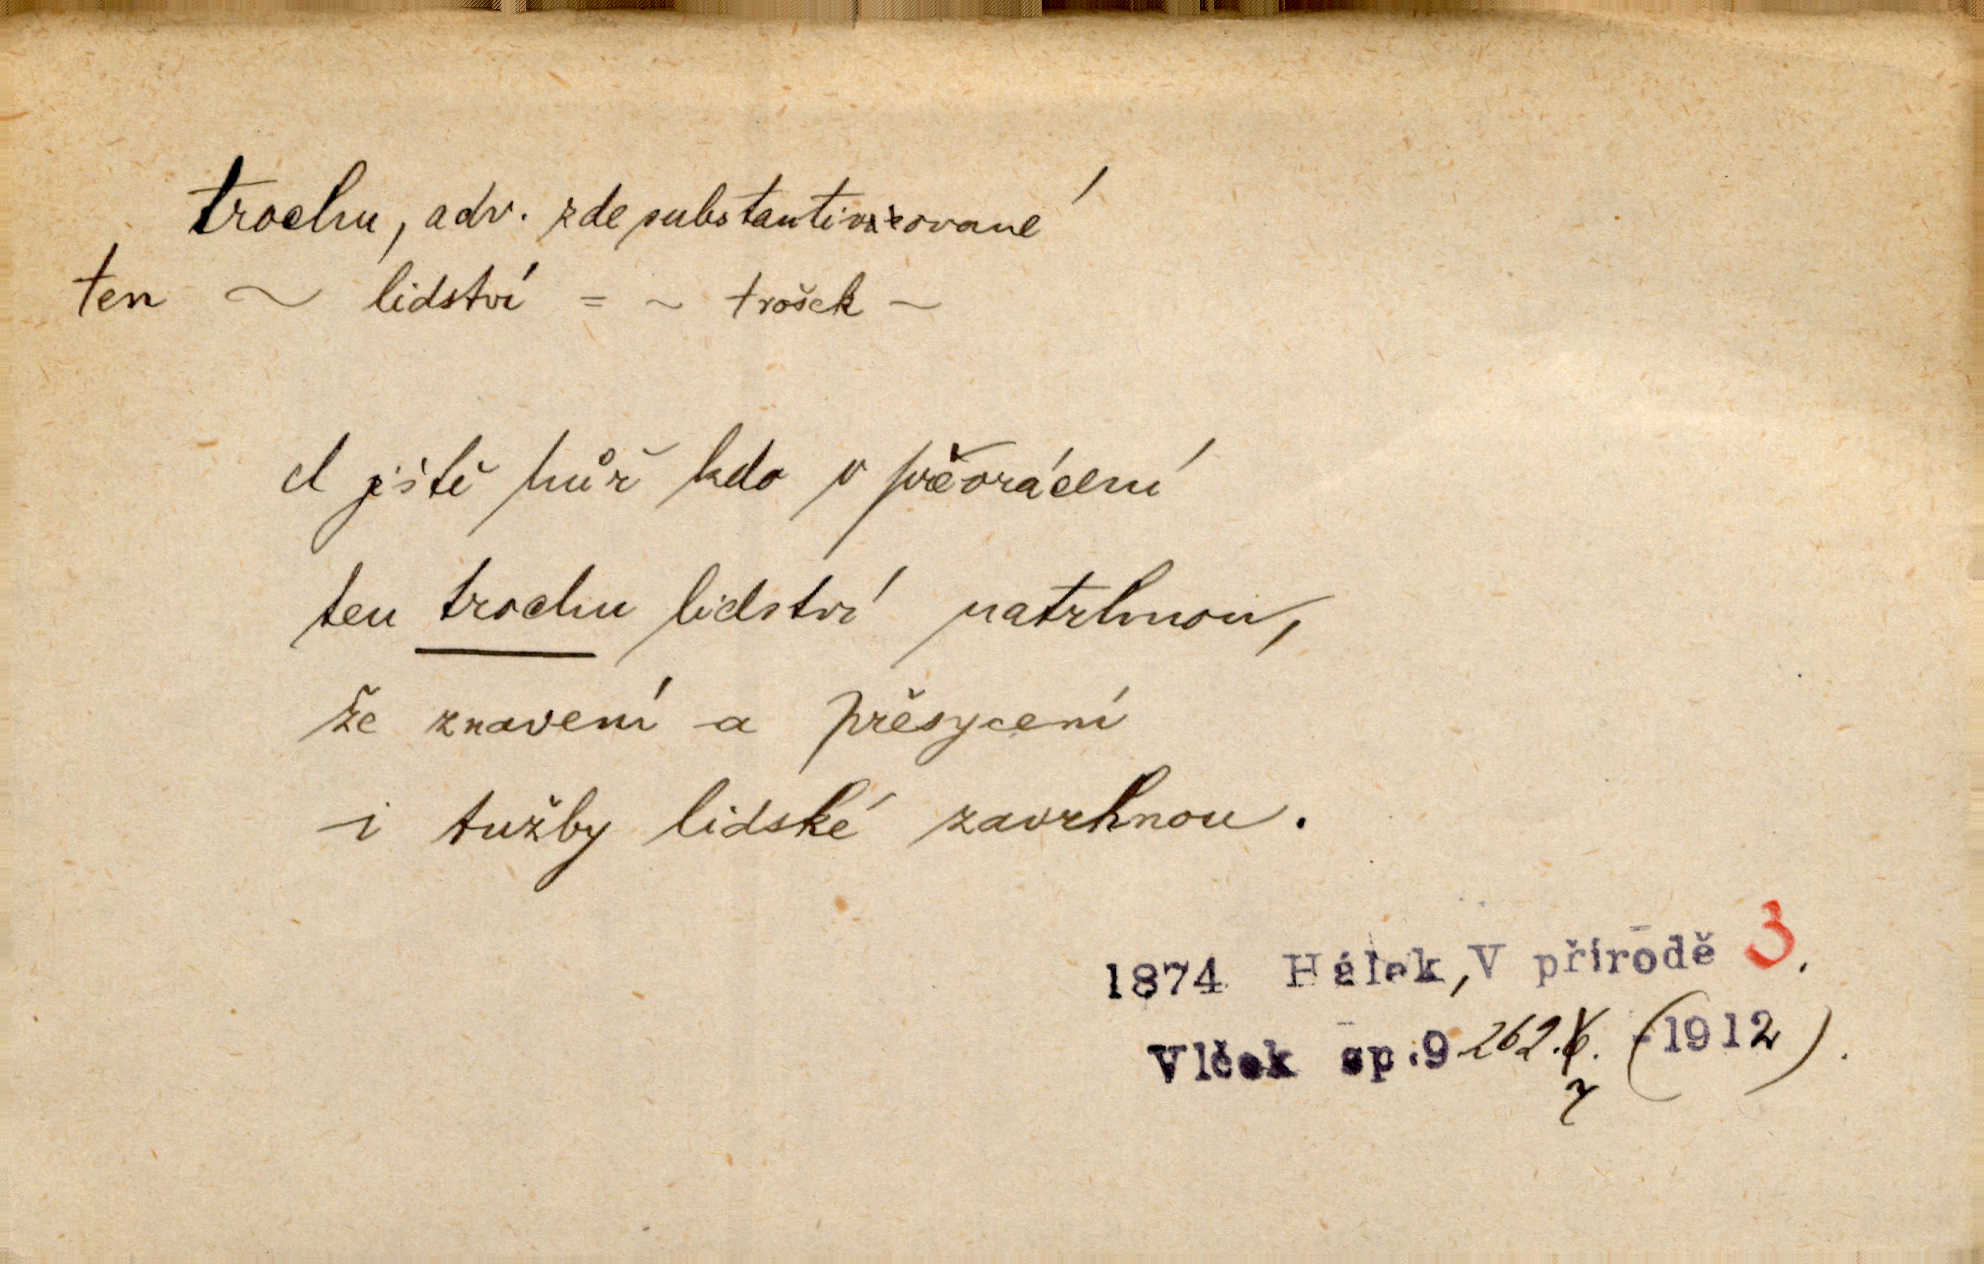 trochu, adv. zde substantivizované
ten ~ lidství = ~ trošek ~
A ještě hůř kdo v převrácení
ten trochu lidství natrhnou,
že znavení a přesycení
i tužby lidské zavrhnou.
1874 Hálek, V přírodě 3.
Vlček sp. 9 262. (1912).